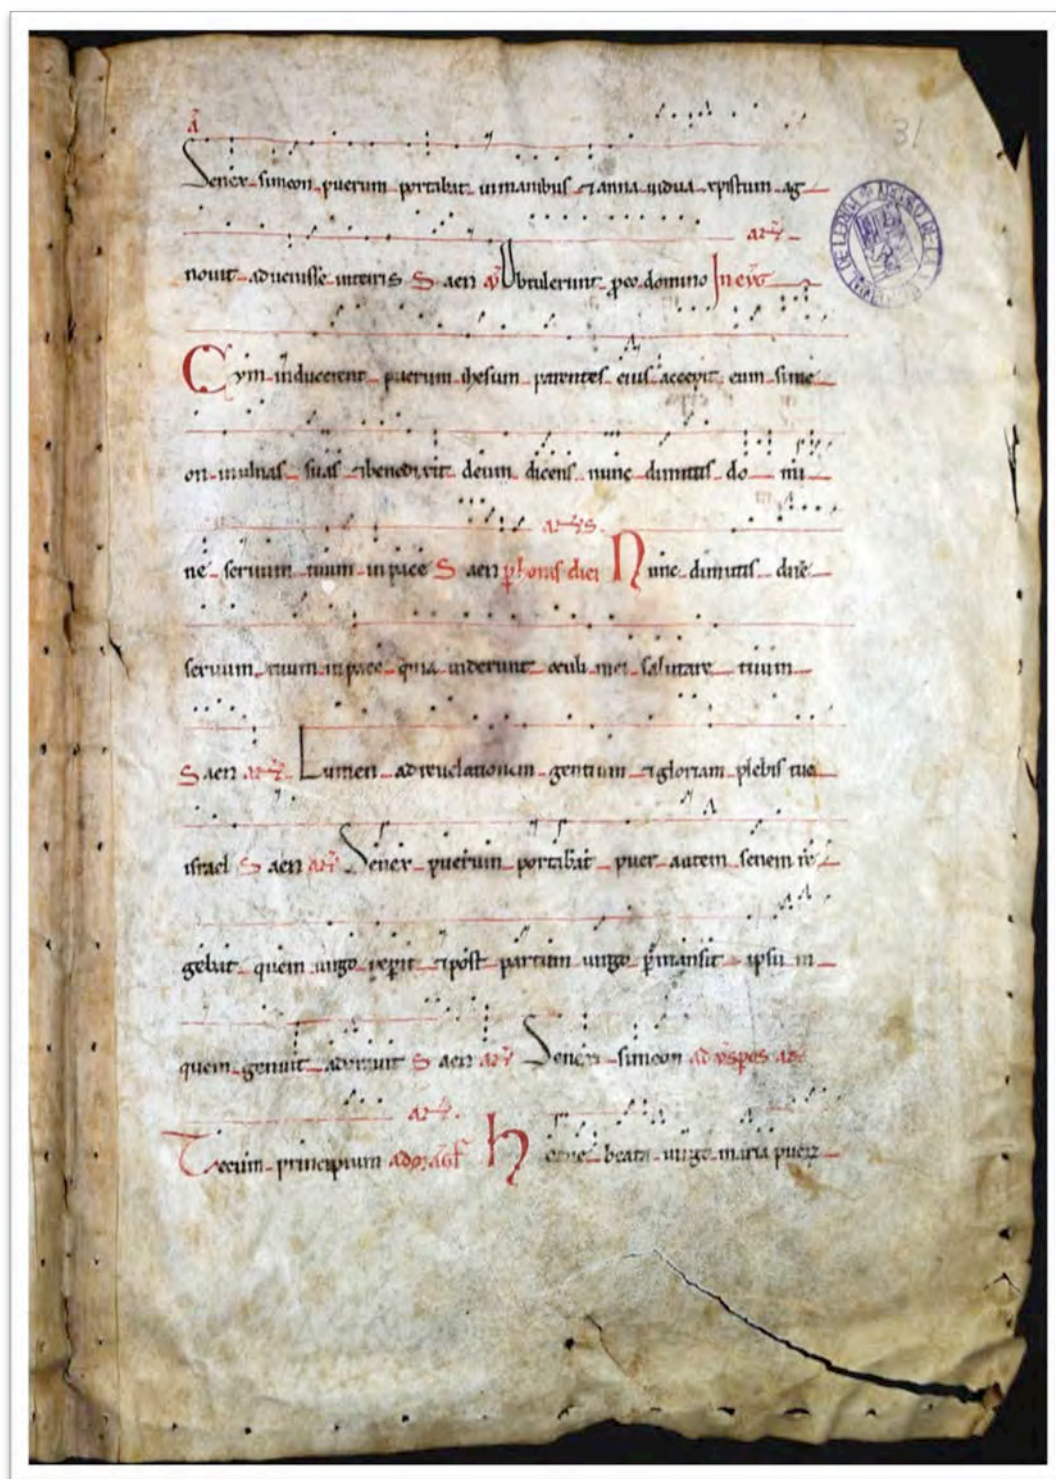 Senex simeon puerum portabat in manibus & anna uidua xpistum ag
31
nouit aduenisse S aeu Obtulerunt pro eo domino In eu
Cym inducerent puerum ihesum parentes eius accepit eum sime
on in ulnas suas & benedixit deum dicens nunc dimittis do mi
ne seruum tuum in pace S aeu horas diei Nunc dimittis dne
seruum tuum in pace quia uiderunt oculi mei salutare tuum
S aeu Lumen ad reuelationem gentium & gloriam plebis tue
israel S aeu Senex puerum portabat puer autem senem re
gebat quem uirgo & post partum uirgo pmansit ipsu in
quem genuit adorauit S aeu Senex simeon ad uspas
Tecum principium beata uirgo maria